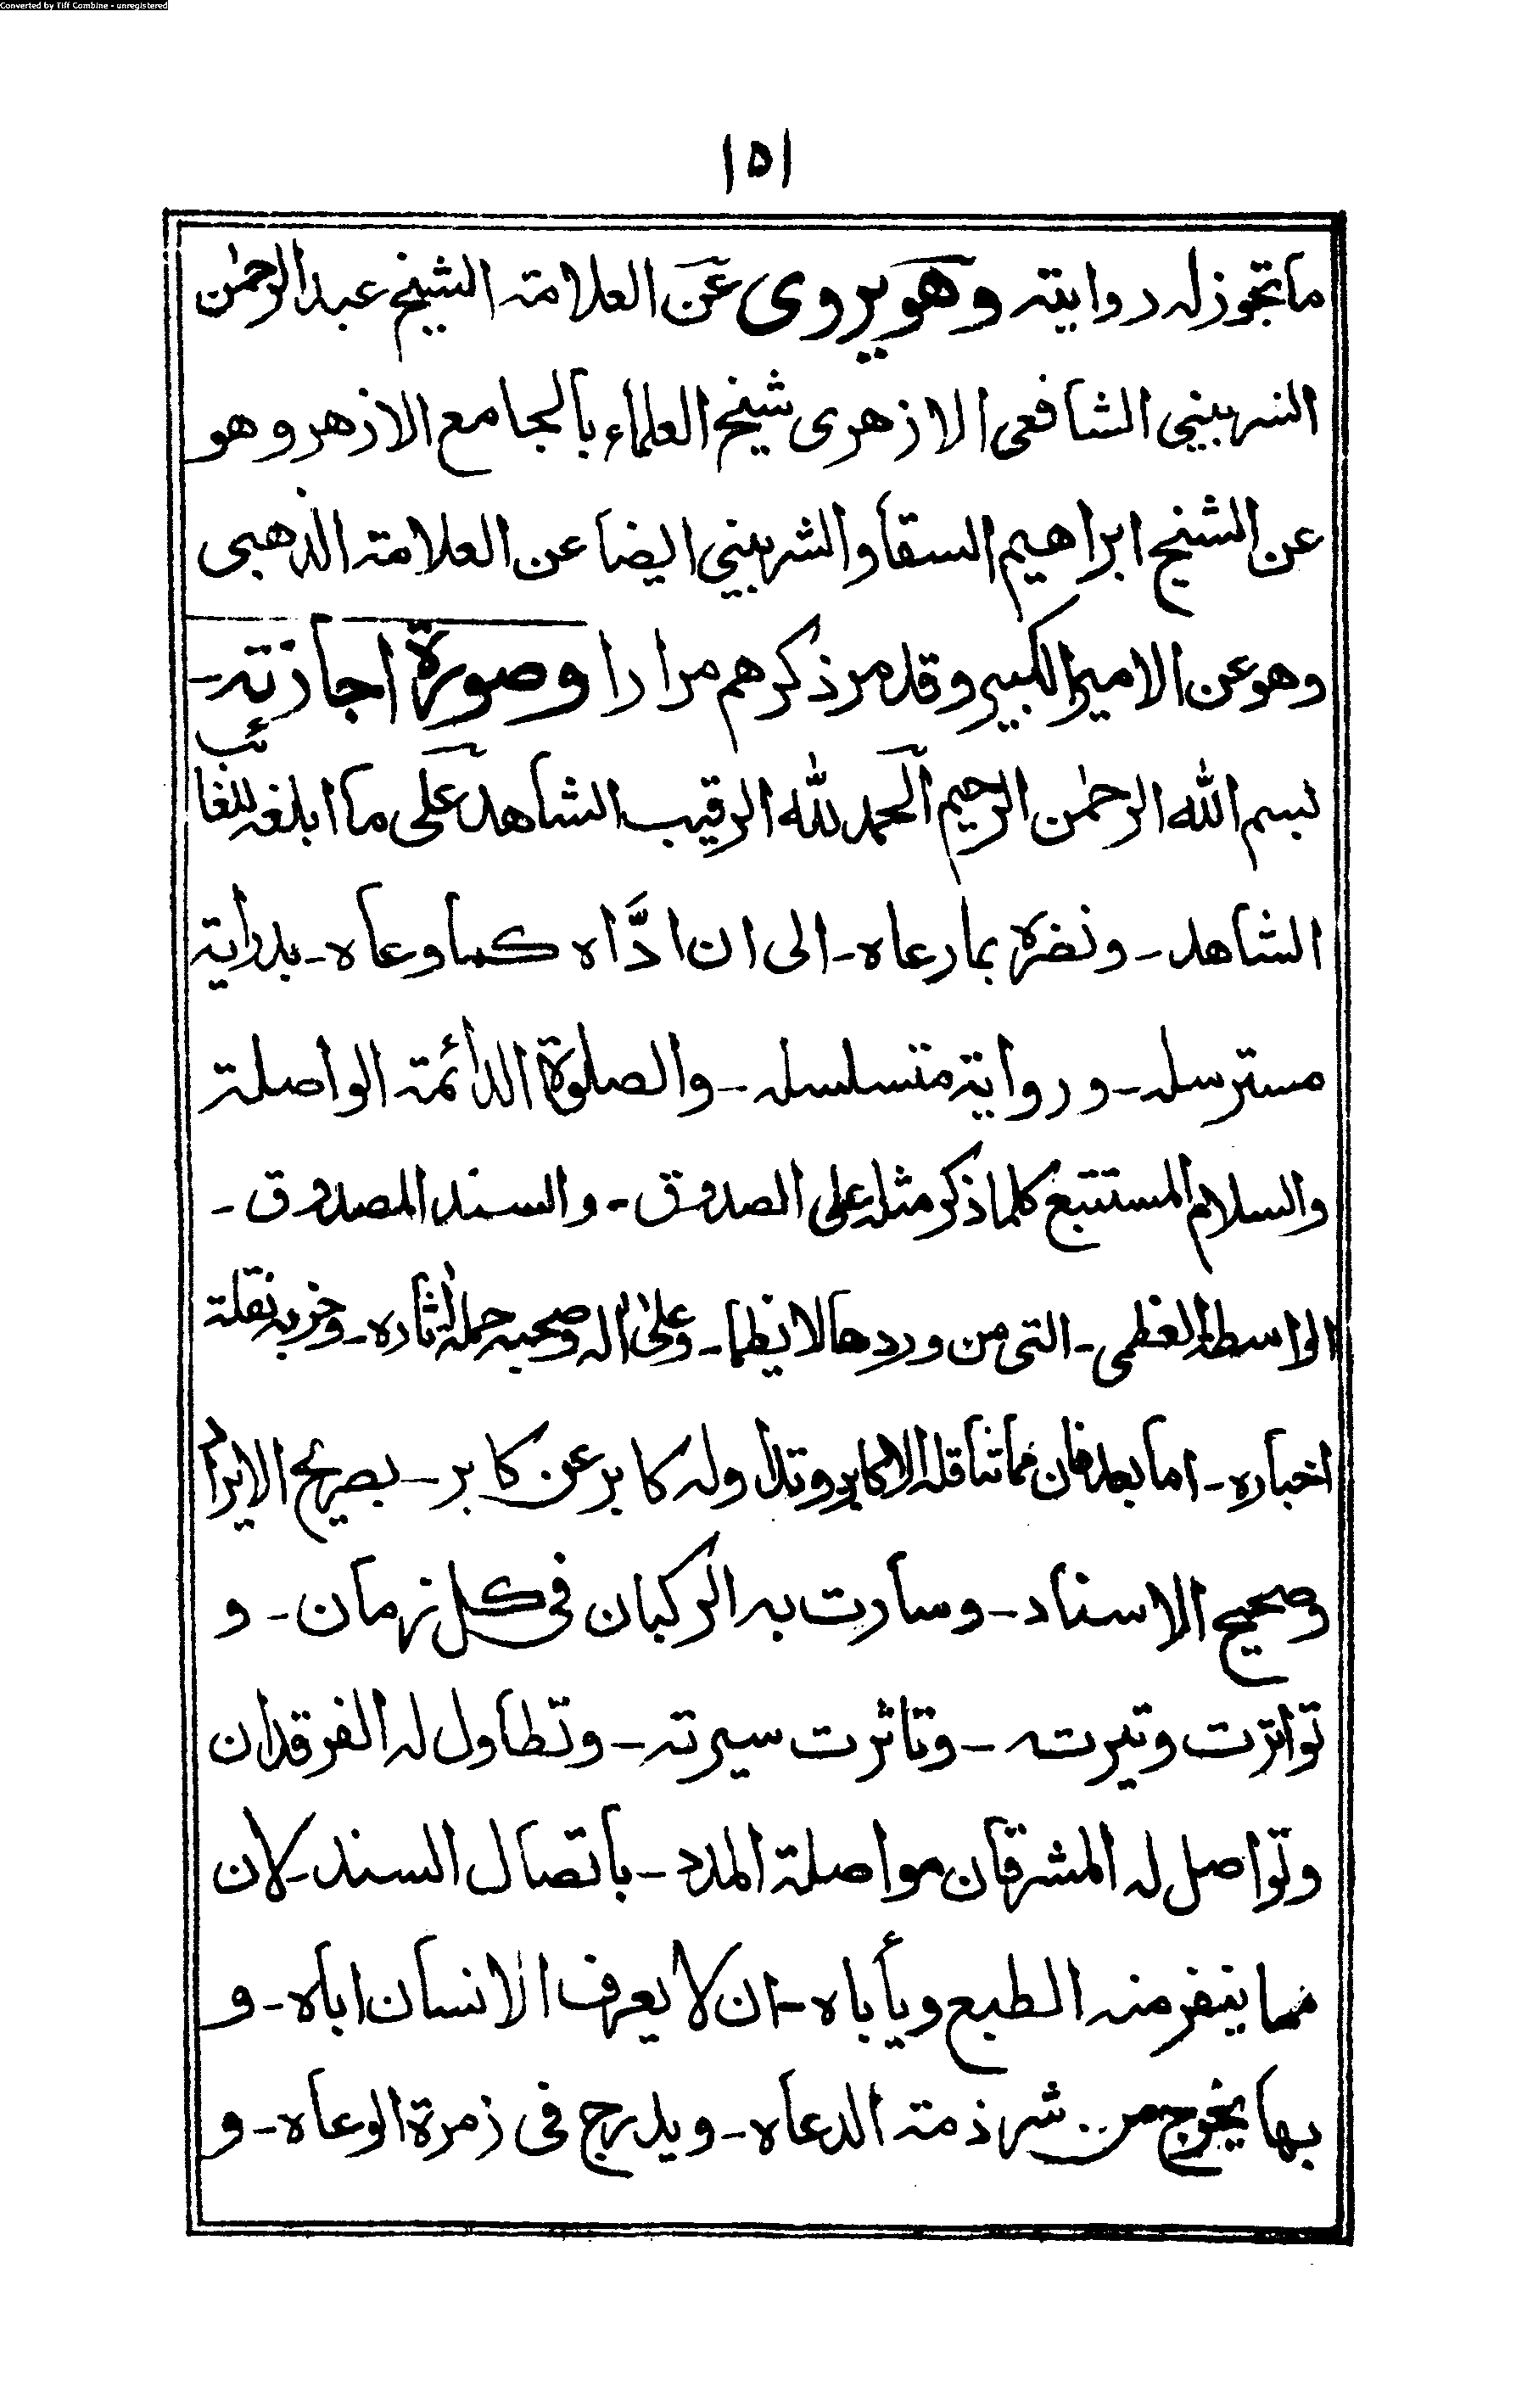 Converted by Tiff Combine - unregistered
١٥١
ما تجوز له روايته وهو يروى عن العلامة الشيخ عبد الرحمٰن
الشربيني الشافعى الازهرى شيخ العلماء بالجامع الازهر وهو
عن الشيخ ابراهيم السقا والشربيني ايضا عن العلامة الذهبى
وهو عن الامير الكبير وقد مر ذكرهم مرارا وصورة اجازته -
بسم الله الرحمٰن الرحيم الحمد لله الرقيب الشاهد على ما ابلغه للغائب
الشاهد - ونضره بما رعاه - الى ان ادَّاه كما وعاه - بدراية
مسترسله - ورواية متسلسله - والصلوة الدائمة الواصلة
والسلام المستتبع كلما ذكر مثله على الصدوق - والسند المصدوق -
الواسطة العظمى - التى من وردها لا يظما - وعلى اله وصحبه حملة اٰثاره - وحزبه نقلة
اخباره - اما بعد فان مما تناقله الاكابر وتداوله كابر عن كابر - بصريح الايراد
وصحيح الاسناد - وسارت به الركبان فى كل زمان - و
تواترت وتيرته - وتاثرت سيرته - وتطاول له الفرقدان
وتواصل له المشرقان مواصلة المدد - باتصال السند - لان
مما ينفر منه الطبع ويأباه - ان لا يعرف الانسان اباه - و
بها يخرج من شرذمة الدعاه - ويدرج فى زمرة الوعاه - و